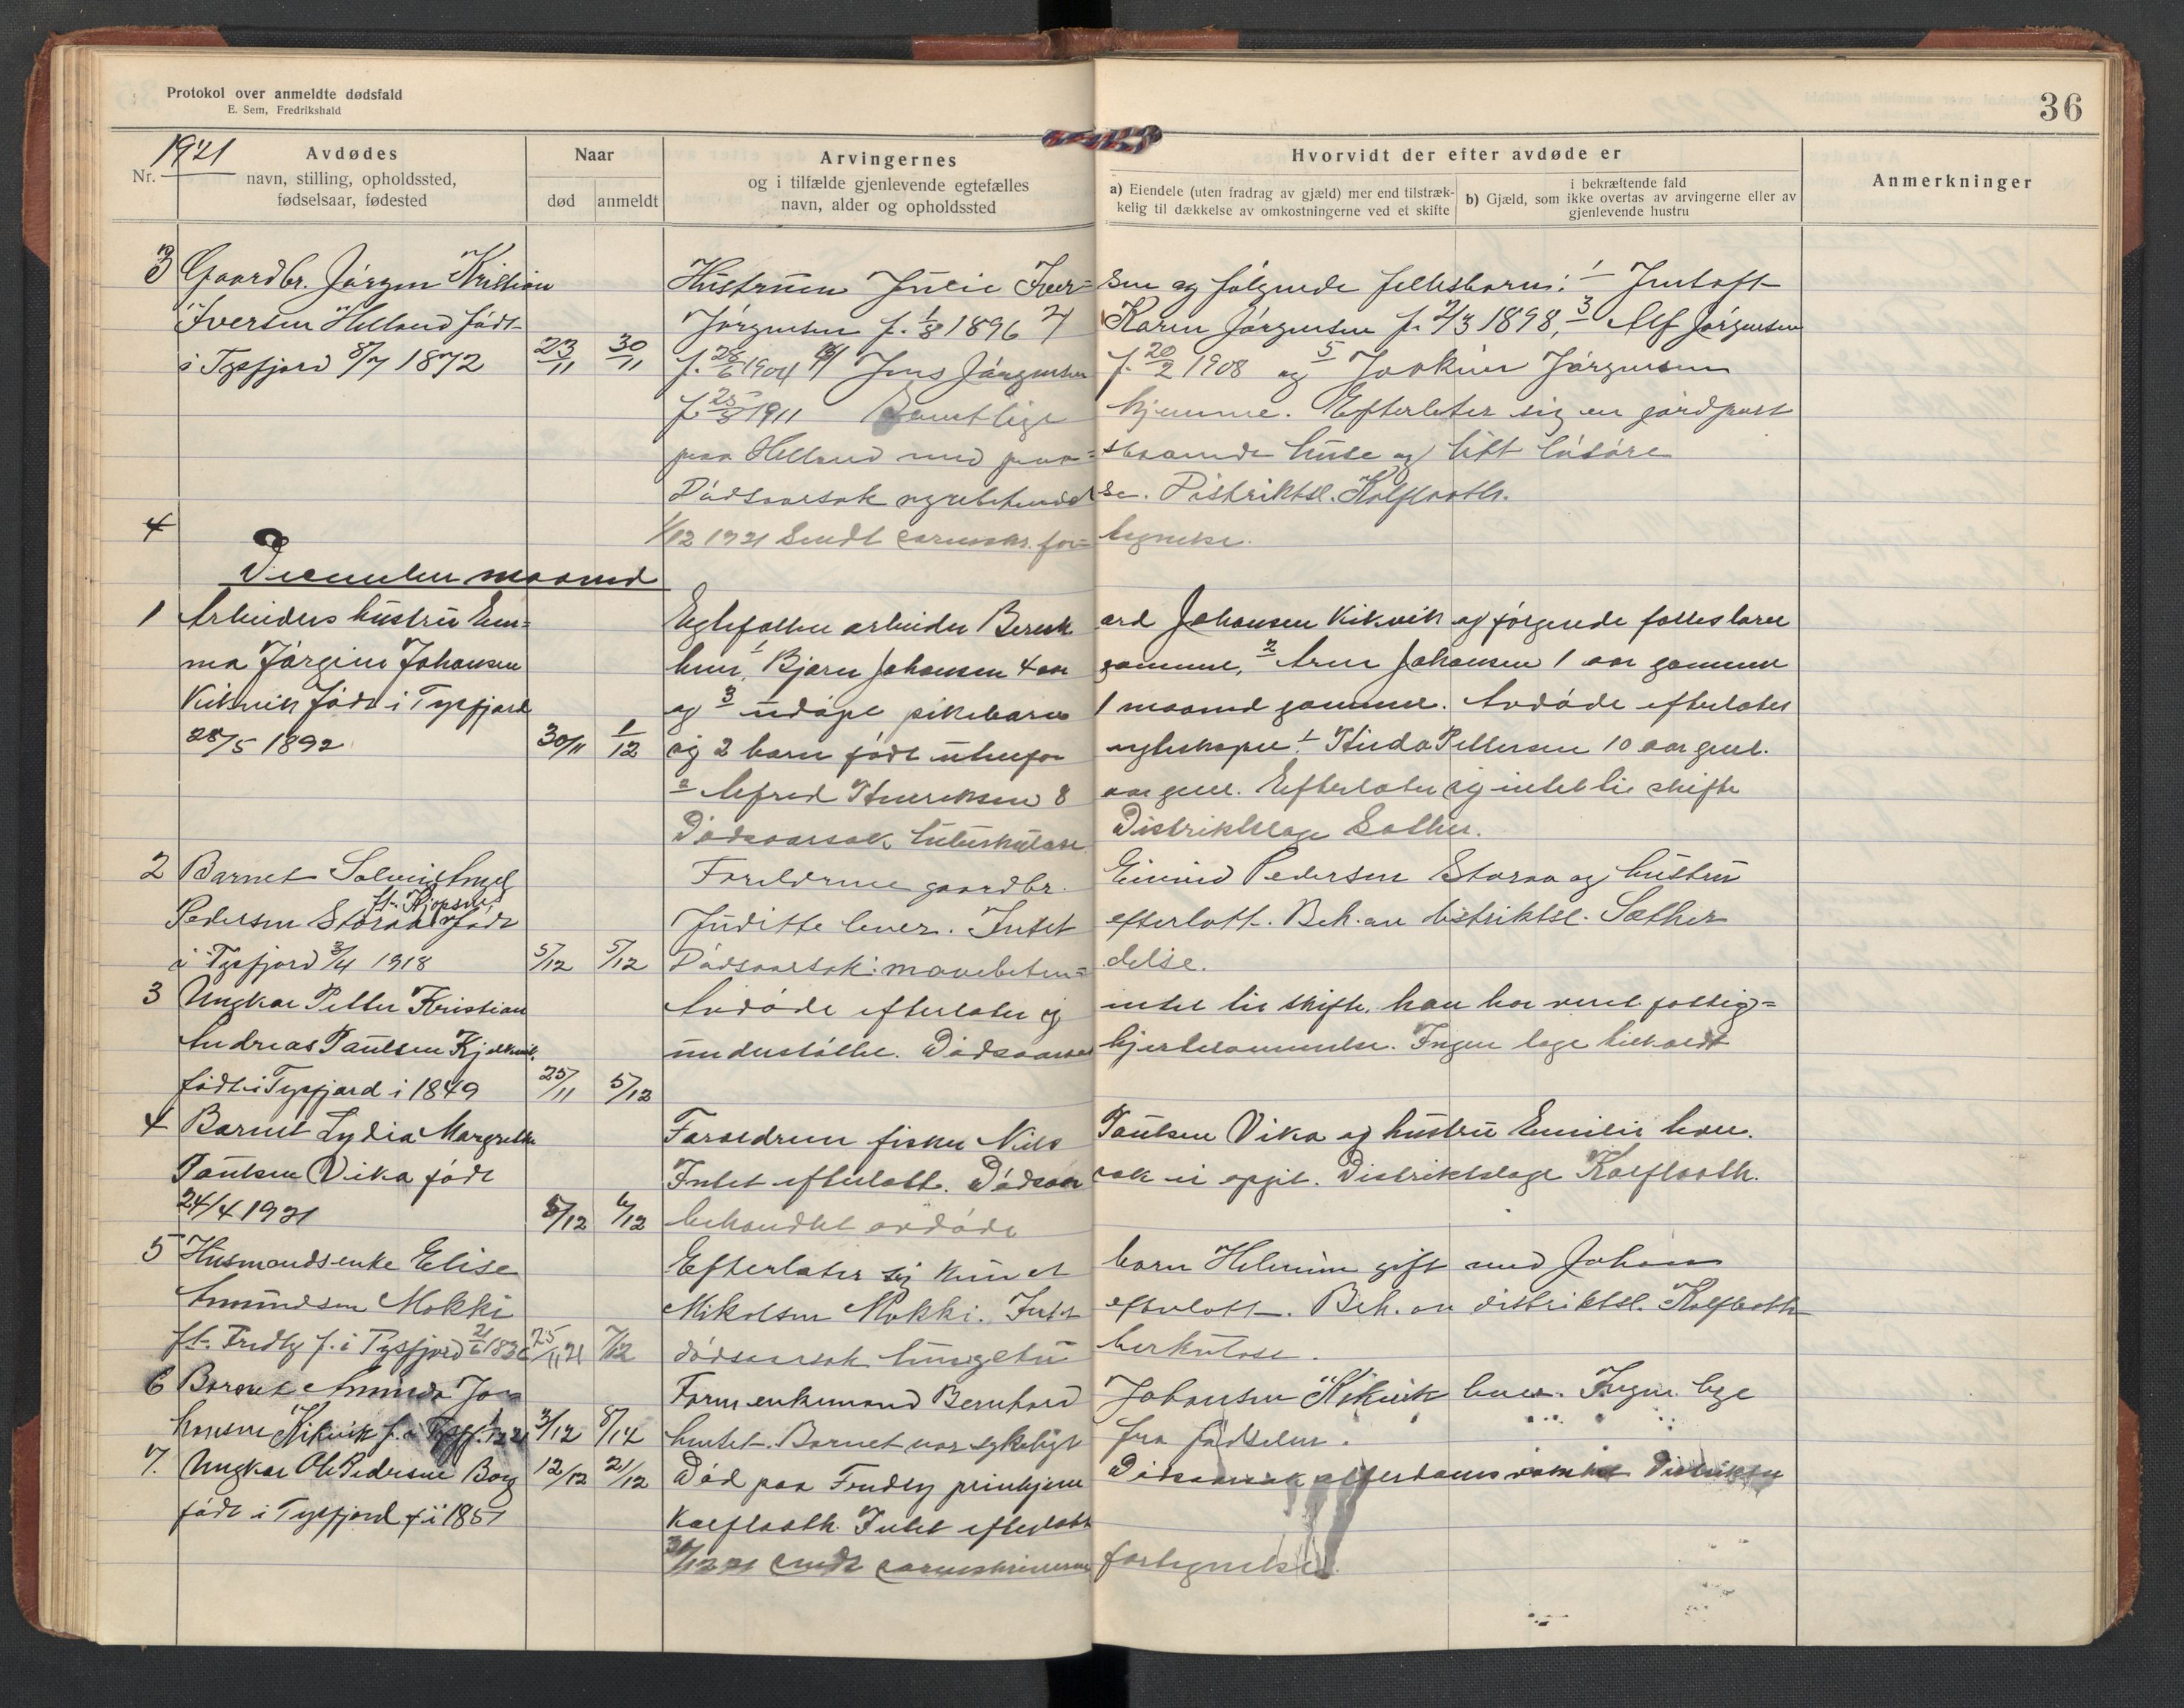 Protokol over anmeldte dødsfald
E. Sem, Fredrikshald
36
1921
Nr.
Avdødes
navn, stilling, opholdssted,
fødselsaar, fødested
Naar
død anmeldt
Arvingernes
og i tilfælde gjenlevende egtefælles
navn, alder og opholdssted
Hvorvidt der efter avdøde er
a) Eiendele (uten fradrag av gjæld) mer end tilstræk-
kelig til dækkelse av omkostningerne ved et skifte
i bekræftende fald
b) Gjæld, som ikke overtas av arvingerne eller av
gjenlevende hustru
Anmerkninger
3 Gaardbr. Jørgen Kristian Hustruen Julie Iver= sen og følgende fellesbarn: 1
Iversen Helland født Jørgensen f. 1/8 1896 2/ Karen Jørgensen f. 2/3 1898, 3 Alf Jørgensen
i Tysfjord 8/7 1872 23/11 30/11 f. 28/6 1904 4/ Jens Jørgensen f. 20/2 1908 og 5 Joakim Jørgensen
f. 25/8 1911 Samtlige hjemme. Efterlater sig en gaardpart
paa Helland med paa= staaende huse og litt løsøre
Dødsaarsak Distriktsl. Kolflaath.
4 1/12 1921 Sendt sorenskr. for= tegnelse.
December maaned
1 Arbeiders hustru Em= Egtefellen arbeider Bernh ard Johansen Kikvik og følgende felles barn
ma Jørgine Johansen 1 Bjarne Johansen 4 aar gammel, 2 Arne Johansen 1 aar gammel
Kikvik født i Tysfjord og 3 udøpt pikebarn 1 maaned gammel. Avdøde efterlater
28/5 1892 30/11 1/12 sig 2 barn født utenfor egteskapet 1 Hilda Pettersen 10 aar gml.
2 Alfred Henriksen 8 aar gml. Efterlater sig intet til skifte
Dødsaarsak tuberkulose Distriktslæge Sæther.
2 Barnet Solveig Forældrene gaardbr. Eivind Pedersen Storaa og hustru
Pedersen Storaa født Juditte lever. Intet efterlatt. Beh. av distriktsl. Sæther
i Tysfjord 3/4 1918 5/12 5/12 Dødsaarsak: mavebeten= delse.
3 Ungkar Petter Kristian Avdøde efterlater sig intet til skifte, han har været fattig=
Andreas Paulsen understøttet. Dødsaarsak hjertelammelse. Ingen læge tilkaldt
født i Tysfjord i 1849 25/11 5/12
4 Barnet Lydia Margrethe Forældrene fisker Nils Paulsen Vika og hustru Emilie lever.
Paulsen Vika født Intet efterlatt. Dødsaar sak ei opgit. Distriktslæge Kolflaath.
24/4 1921 5/12 6/12 behandlet avdøde
5 Husmandsenke Elise Efterlater sig kun et barn Helmine gift med Johan
Amundsen Mokki Mikalsen Mokki. Intet efterlatt. Beh. av distriktsl. Kolflaath
f. i Tysfjord 25/11 21 7/12 dødsaarsak lungetu berkulose.
6 Barnet Amunda Jo Faren enkemand Bernhard Johansen Kikvik lever. Ingen læge
hansen Kikvik f. i Tysfj. 3/12 8/12 hentet. Barnet var sykeligt fra fødselen.
7. Ungkar Ole Pedersen Borg 12/12 21/12 Død paa Fredly pleiehjem Dødsaarsak alderdoms
født i Tysfjord i 1851 Kolflaath. Intet efterlatt
30/12 21 sendt sorenskriveren fortegnelse.